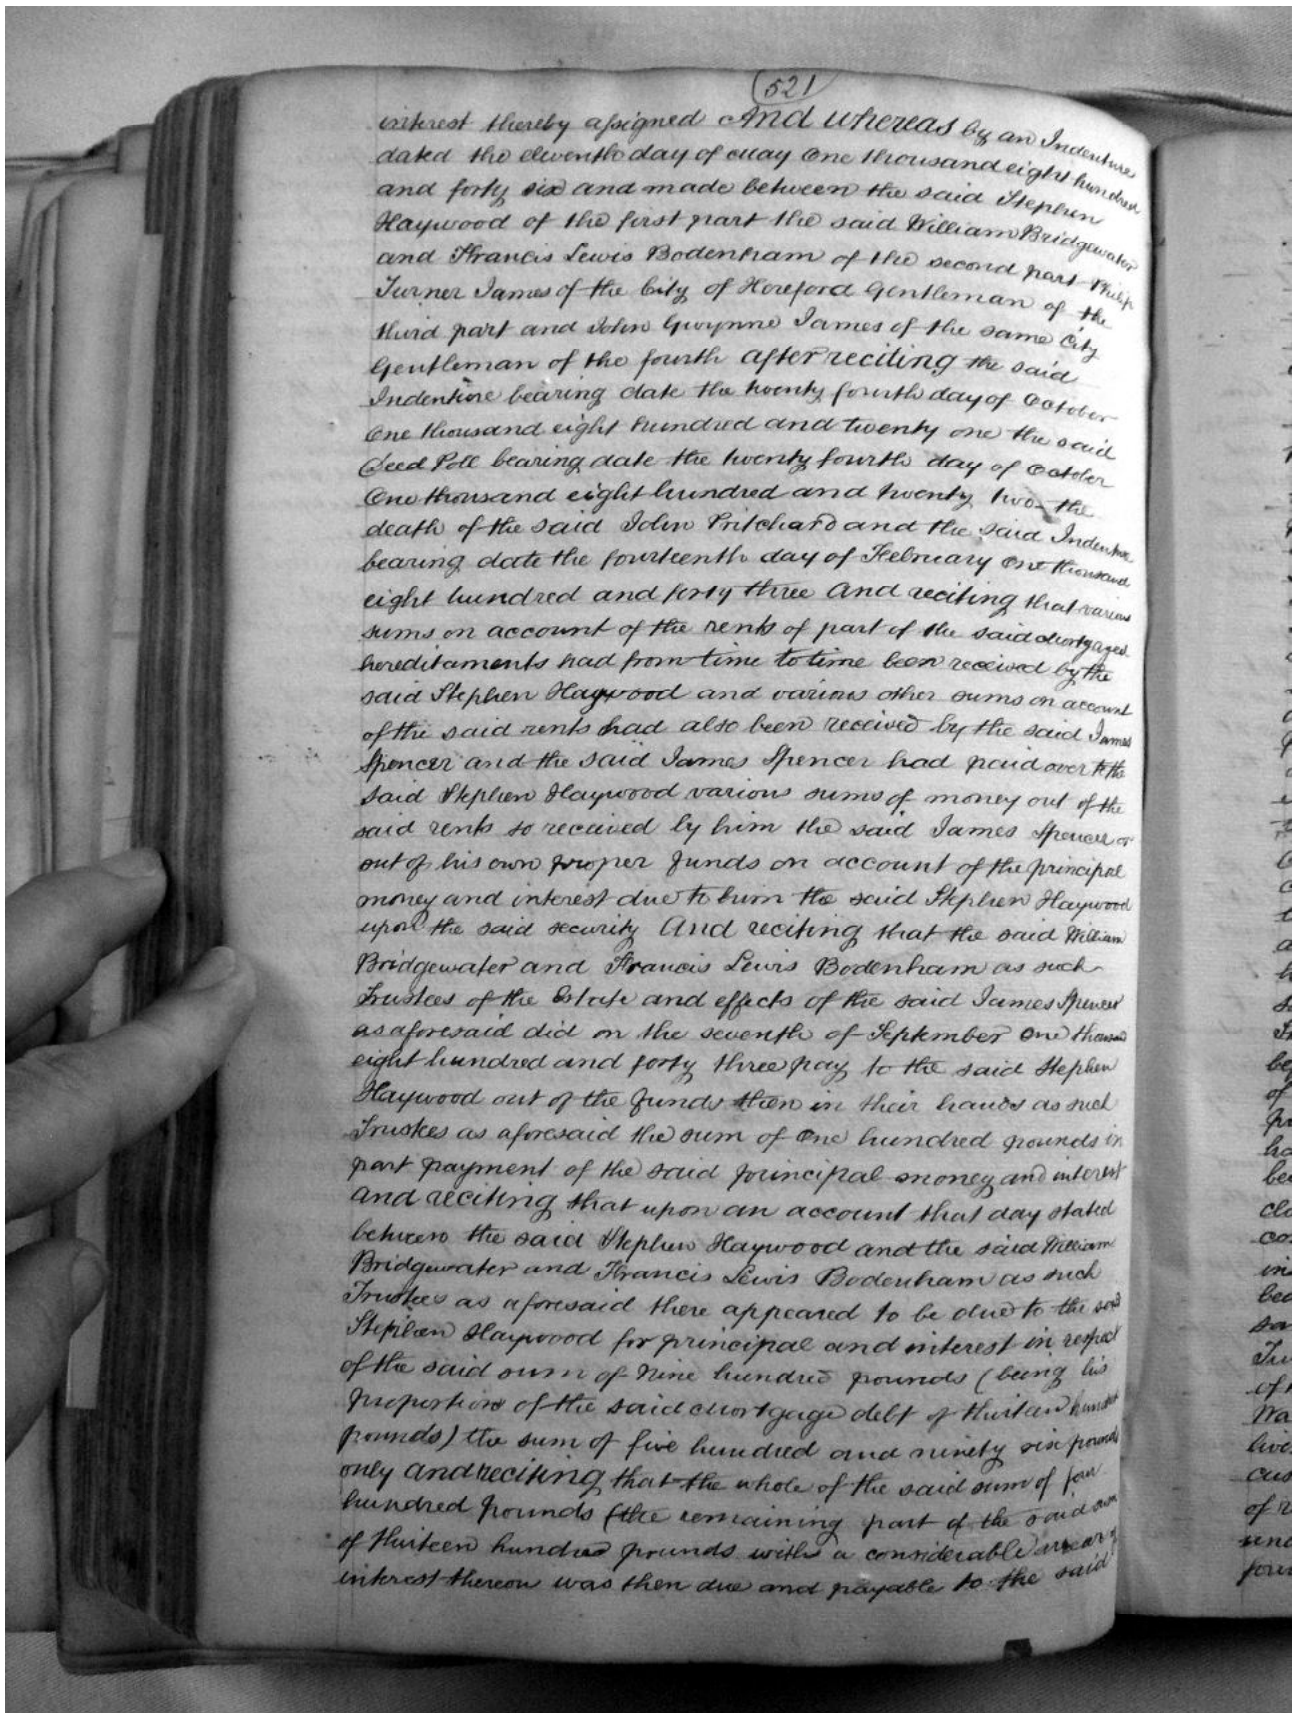 521
interest thereby assigned And whereas by an Indenture
dated the eleventh day of May One thousand eight hundred
and forty six and made between the said Stephen
Haywood of the first part the said William Bridgewater
and Francis Lewis Bodenham of the second part Philip
Turner James of the City of Hereford Gentleman of the
third part and John Gwynne James of the same City
Gentleman of the fourth after reciting the said
Indenture bearing date the twenty fourth day of October
One thousand eight hundred and twenty one the said
Deed Poll bearing date the twenty fourth day of October
One thousand eight hundred and twenty two the
death of the said John Pritchard and the said Indenture
bearing date the fourteenth day of February One thousand
eight hundred and forty three And reciting that various
sums on account of the rents of part of the said Mortgaged
hereditaments had from time to time been received by the
said Stephen Haywood and various other sums on account
of the said rents had also been received by the said James
Spencer and the said James Spencer had paid over to the
said Stephen Haywood various sums of money out of the
said rents so received by him the said James Spencer or
out of his own proper funds on account of the principal
money and interest due to him the said Stephen Haywood
upon the said security And reciting that the said William
Bridgewater and Francis Lewis Bodenham as such
Trustees of the Estate and effects of the said James Spencer
as aforesaid did on the seventh of September One thousand
eight hundred and forty three pay to the said Stephen
Haywood out of the funds then in their hands as such
Trustees as aforesaid the sum of One hundred pounds in
part payment of the said principal money and interest
And reciting that upon an account that day stated
between the said Stephen Haywood and the said William
Bridgewater and Francis Lewis Bodenham as such
Trustees as aforesaid there appeared to be due to the said
Stephen Haywood for principal and interest in respect
of the said sum of Nine hundred pounds (being his
proportion of the said Mortgage debt of thirteen hundred
pounds) the sum of five hundred and ninety six pounds
only And reciting that the whole of the said sum of four
hundred pounds (the remaining part of the said sum
of thirteen hundred pounds with a considerable arrear of
interest thereon was then due and payable to the said